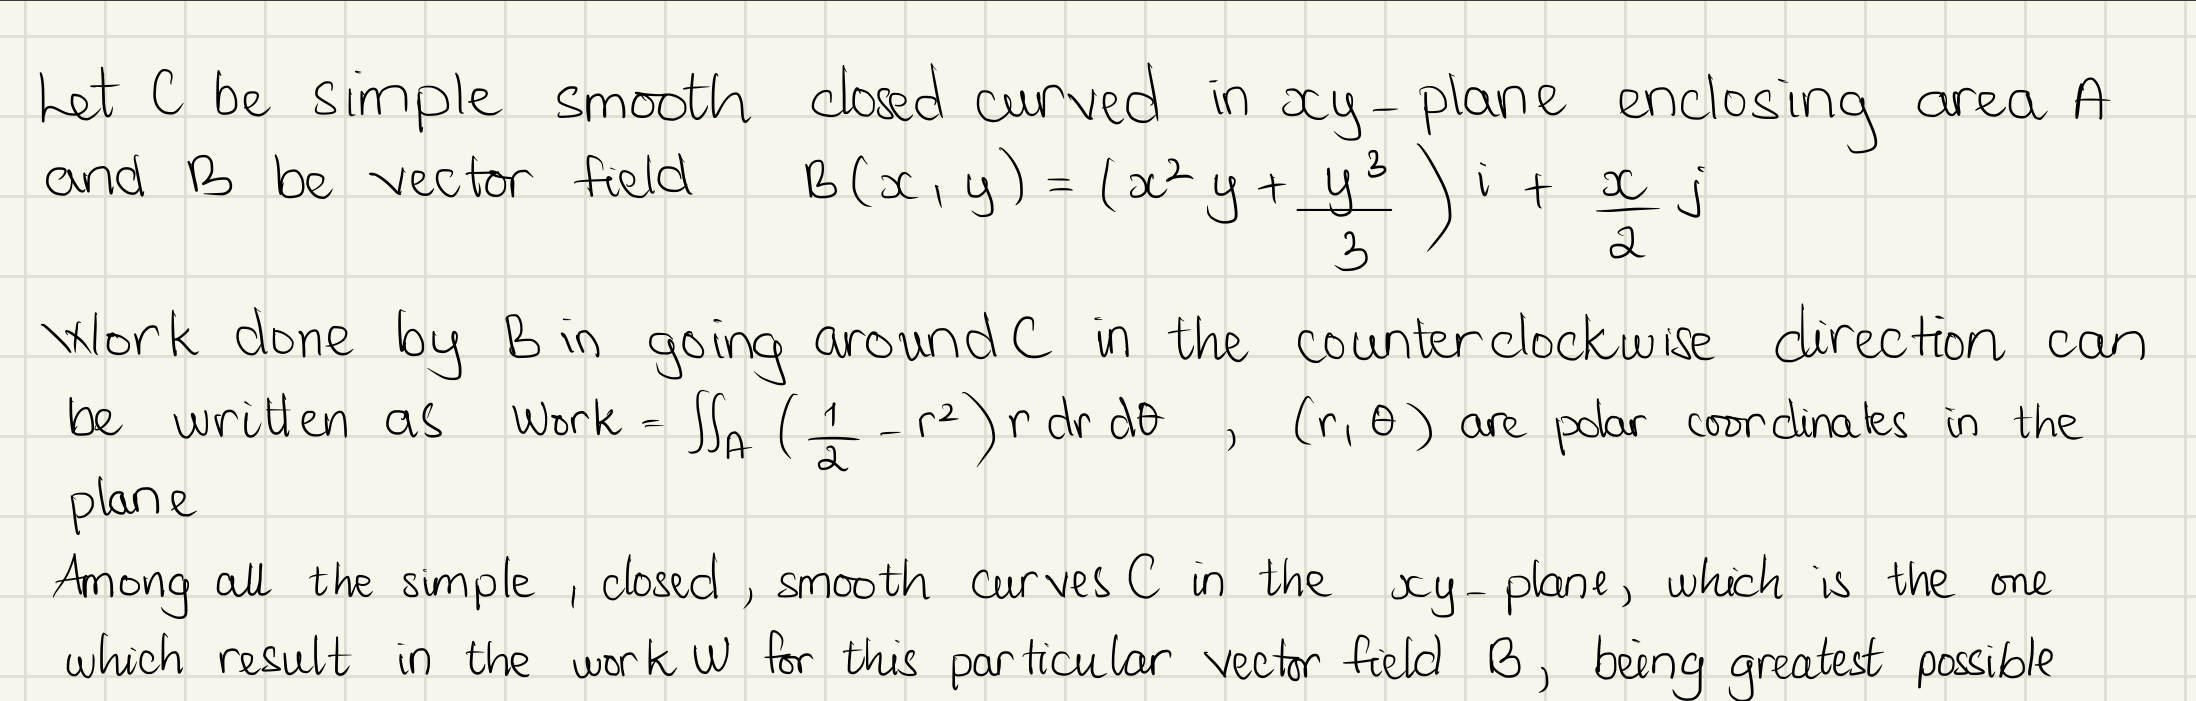 Let C be simple smooth closed curved in xy-plane enclosing area A
and B be vector field B(x, y) = (x² y + y³/3) i + x/2 j
Work done by B in going around C in the counterclockwise direction can
be written as Work = ∬_A (1/2 - r²) r dr dθ , (r, θ) are polar coordinates in the
plane
Among all the simple, closed, smooth curves C in the xy-plane, which is the one
which result in the work W for this particular vector field B, being greatest possible